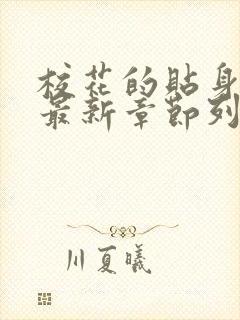 校花的貼身
最新章節列
川夏曦